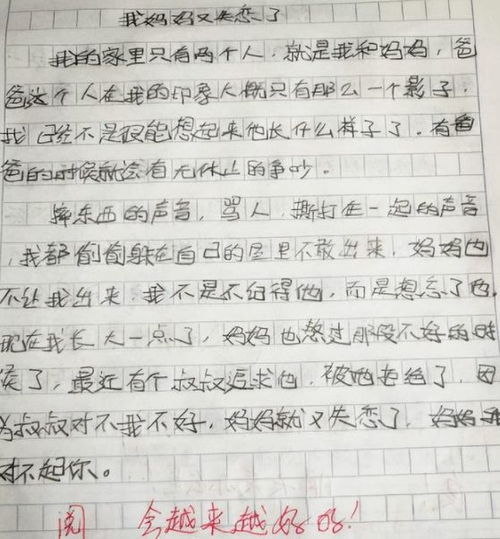 我妈妈又失恋了
我的家里只有两个人，就是我和妈妈，爸
爸这个人在我的印象大概只有那么一个影子，
我已经不是很能想起来他长什么样子了，有爸
爸的时候就会有无休止的争吵。
摔东西的声音，骂人，撕打在一起的声音
，我都偷偷躲在自己的屋里不敢出来，妈妈也
不让我出来，我不是不记得他，而是想忘了他，
现在我长大一点了，妈妈也熬过那段不好的时
候了，最近有个叔叔追求他，被她拒绝了，因
为叔叔对不我不好，妈妈就又失恋了，妈妈我
对不起你。
阅 会越来越好的！